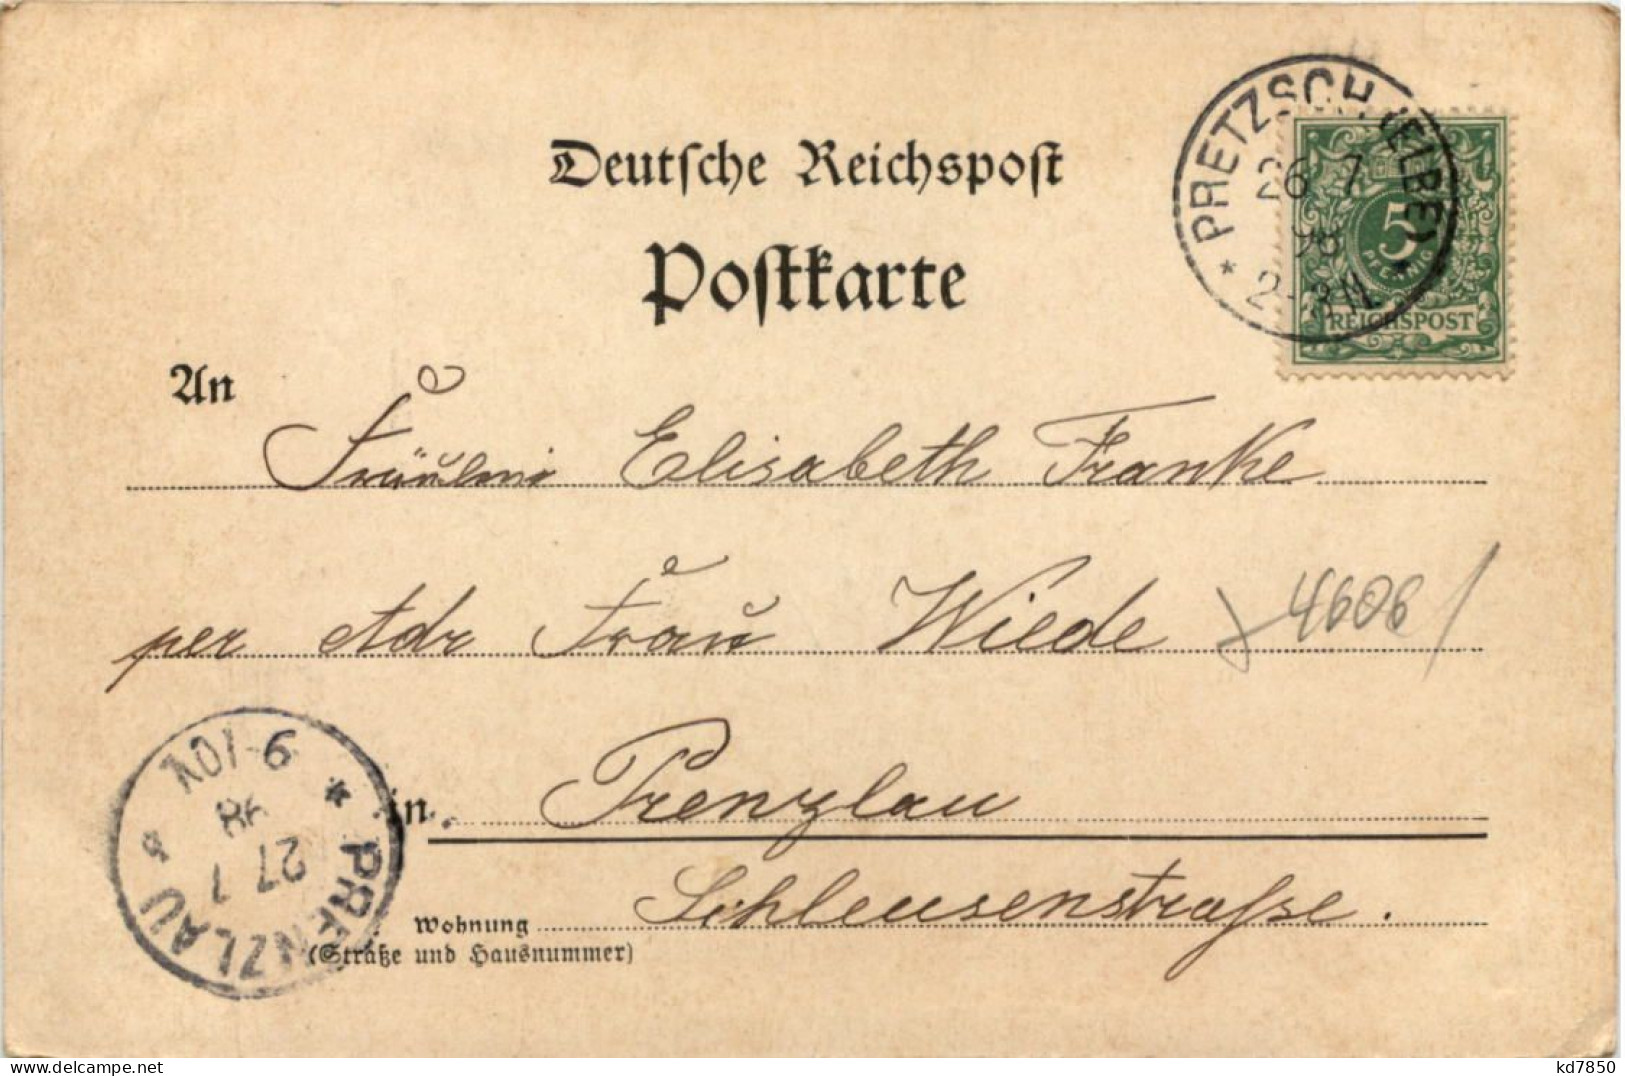 Deutsche Reichspost
Postkarte
PRETZSCH (ELBE)
26 7
98
2-3 N.
5
PFENNIG
REICHSPOST
An
Fräulein Elisabeth Franke
per Adr Frau Wiede
4606
in Prenzlau
Wohnung Schleusenstraße.
(Straße und Hausnummer)
PRENZLAU
27 7
98
9-10V
kd7850